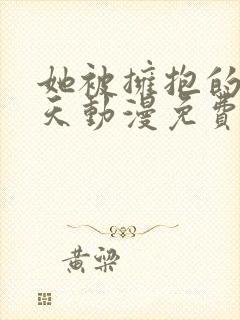 她被擁抱的
天動漫免費
黃梁